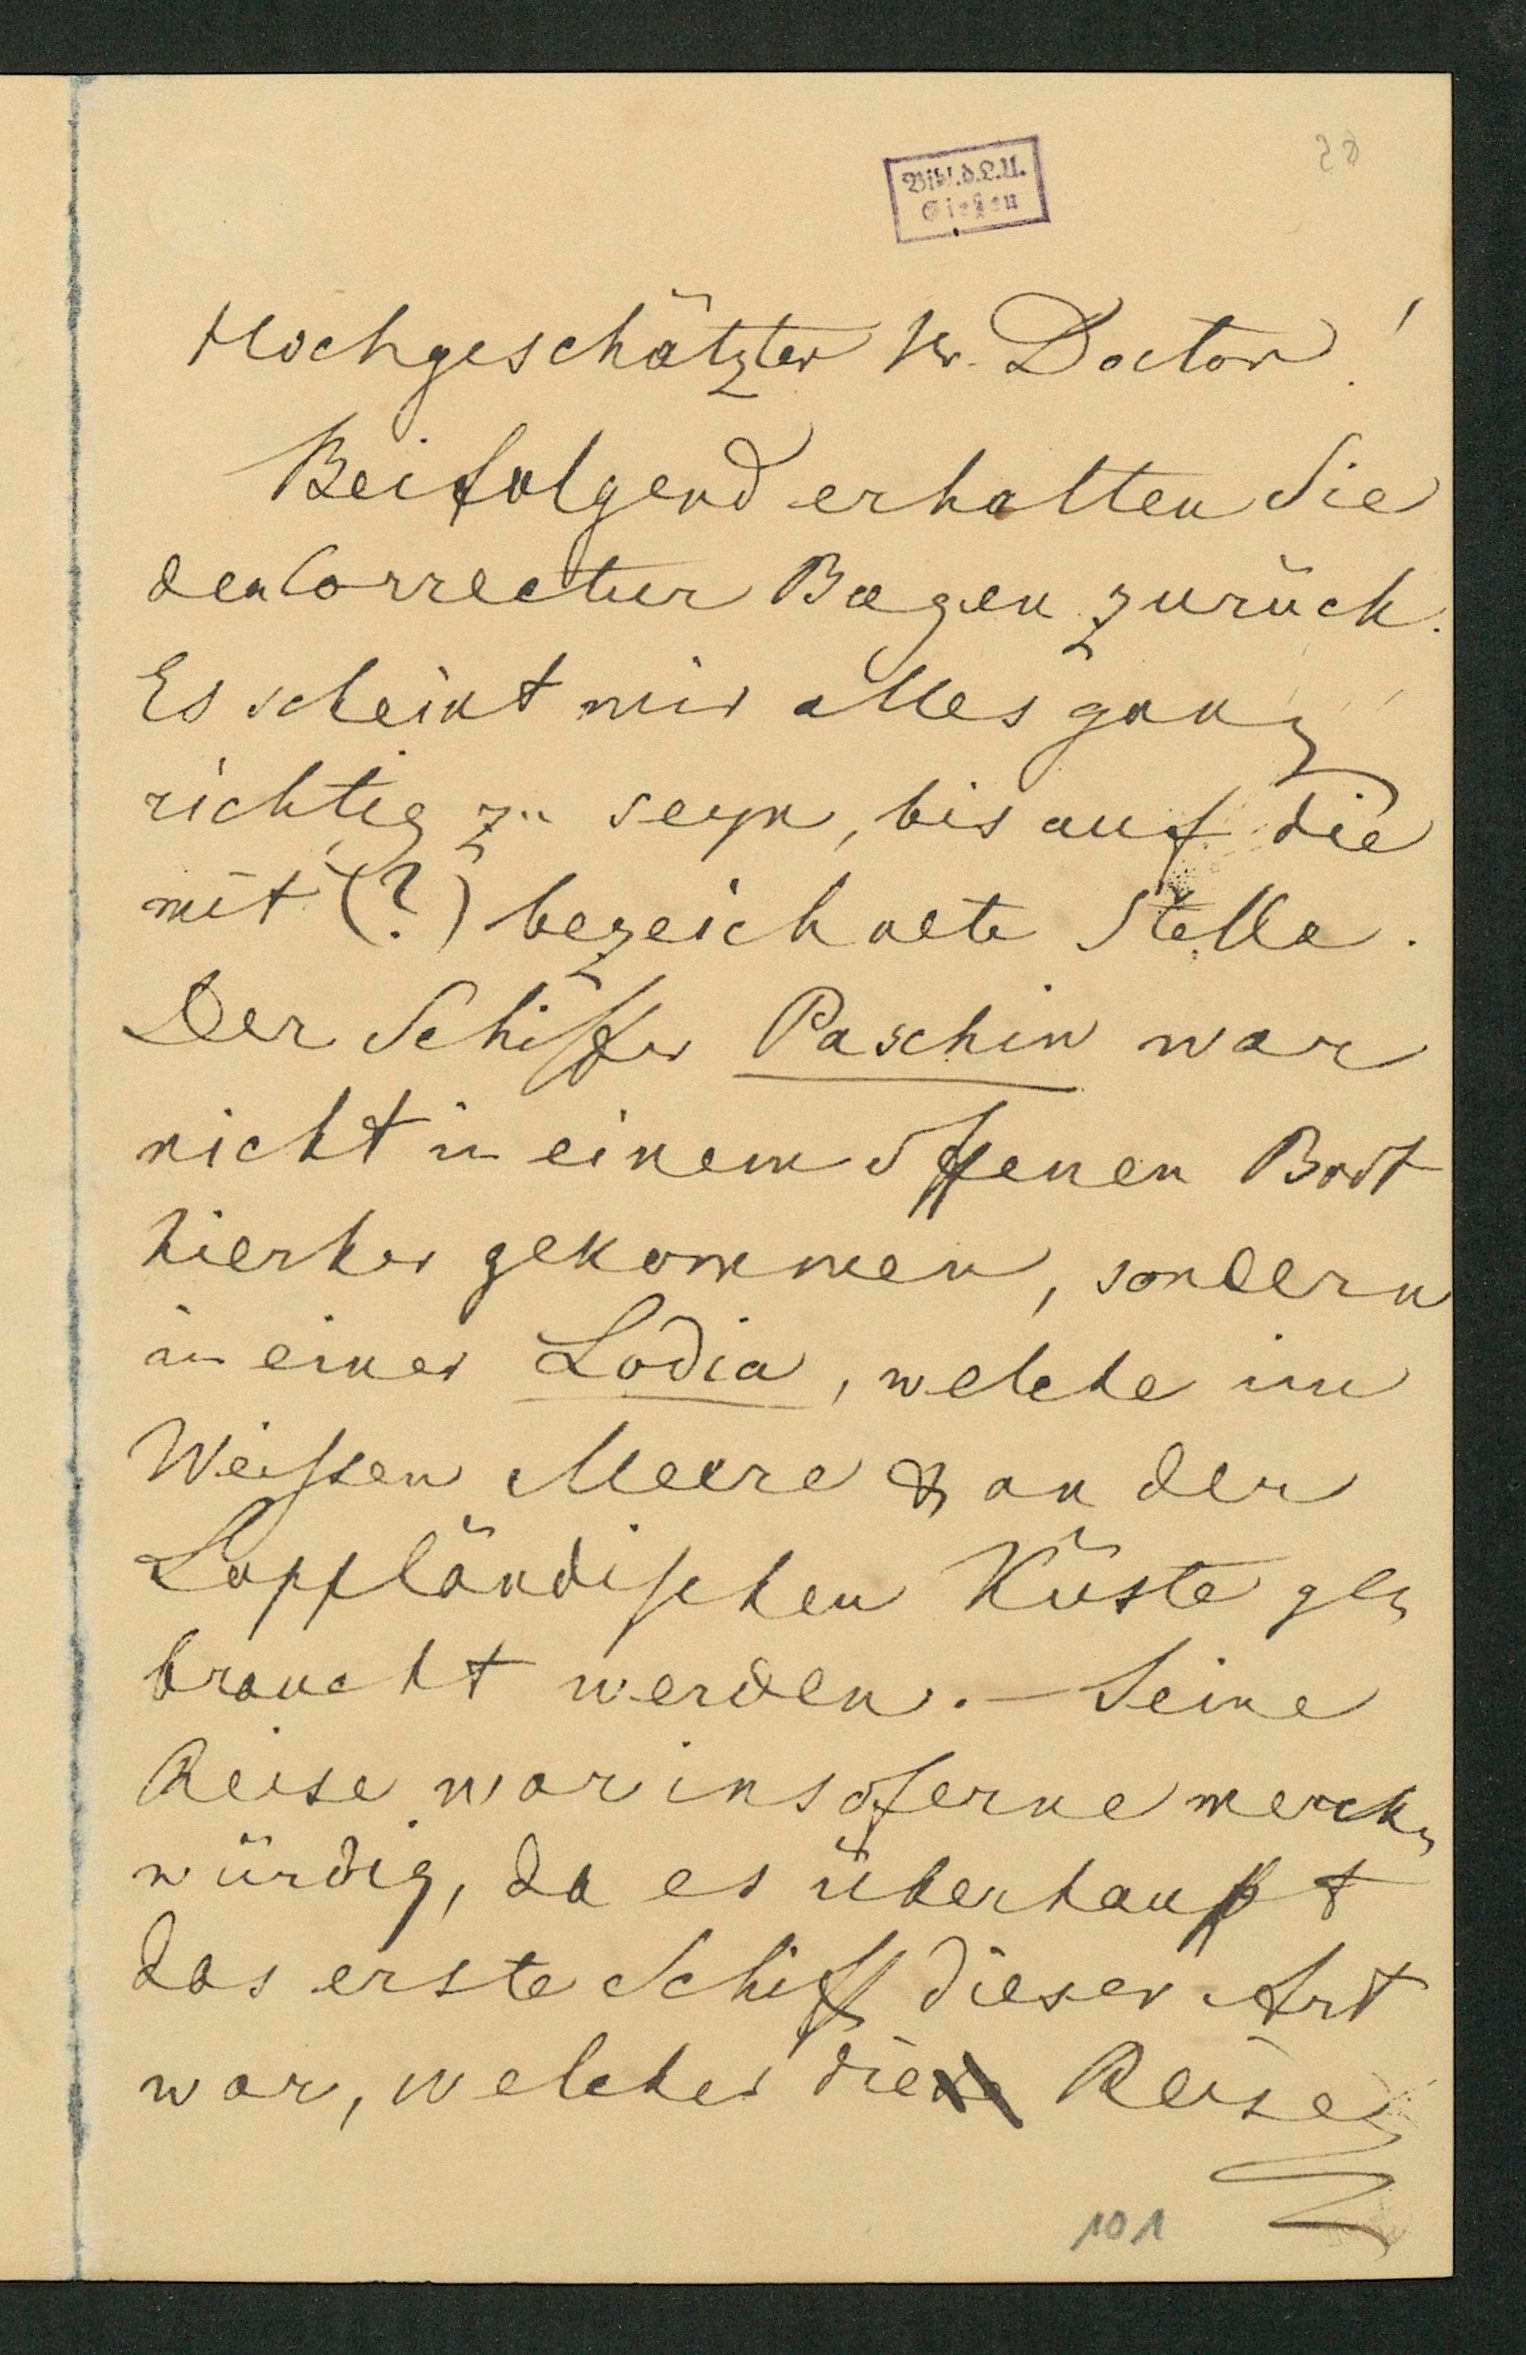 28
Bibl.d.L.U.
Gießen
Hochgeschätzter Hr. Doctor!
Beifolgend erhalten Sie
den Correctur Bogen zurück.
Es scheint mir alles ganz
richtig zu seyn, bis auf die
mit (?) bezeichnete Stelle.
Der Schiffer Paschin war
nicht in einem offenen Boot
hierher gekommen, sondern
in einer Lodia, welche im
Weissen Meere & an der
Lappländischen Küste ge-
braucht werden. - Seine
Reise war insoferne merck-
würdig, da es überhaupt
das erste Schiff dieser Art
war, welches die Reise
101